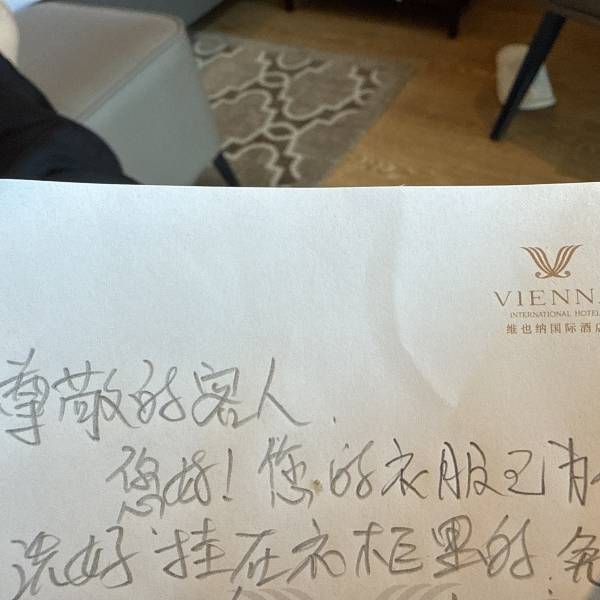 VIENNA
INTERNATIONAL HOTEL
维也纳国际酒店
尊敬的客人.
您好!您的衣服已为
洗好挂在衣柜里的,免